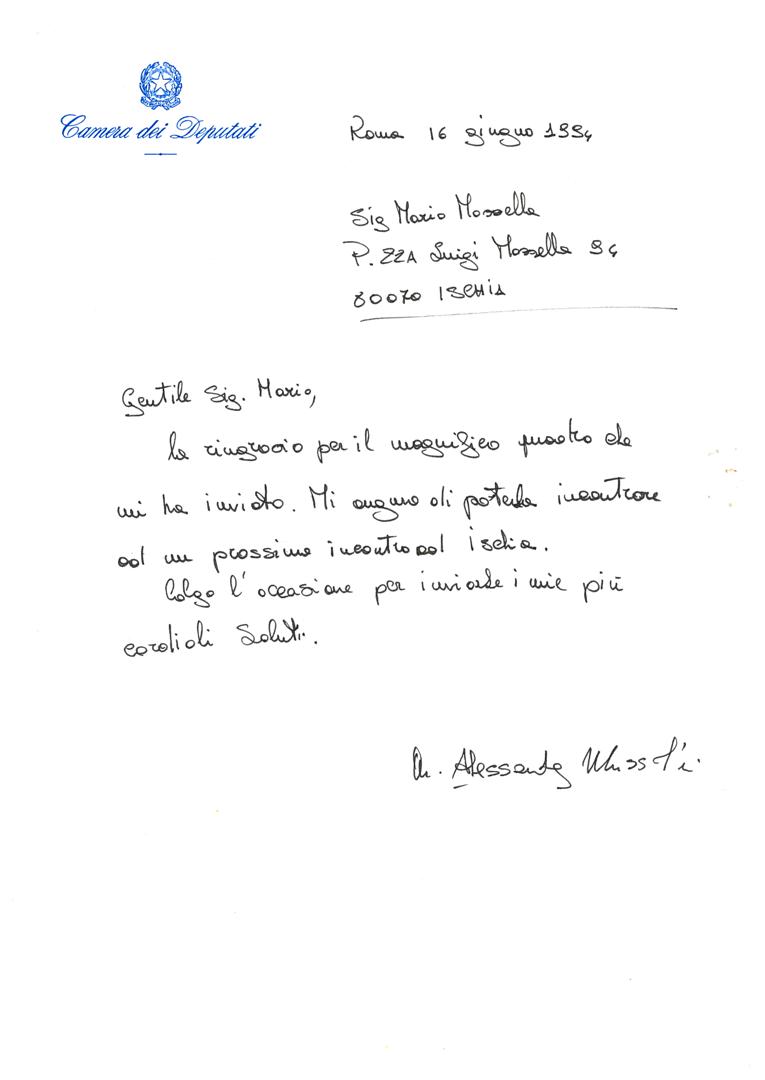 Camera dei Deputati
Roma 16 giugno 1994
Sig Mario Mossella
P.ZZA Luigi Mossella 94
80070 ISCHIA
Gentile Sig. Mario,
la ringrazio per il magnifico quadro che
mi ha inviato. Mi auguro di poterla incontrare
ad un prossimo incontro ad Ischia.
Colgo l'occasione per inviarle i mie più
cordiali Saluti.
On. Alessandra Mussolini